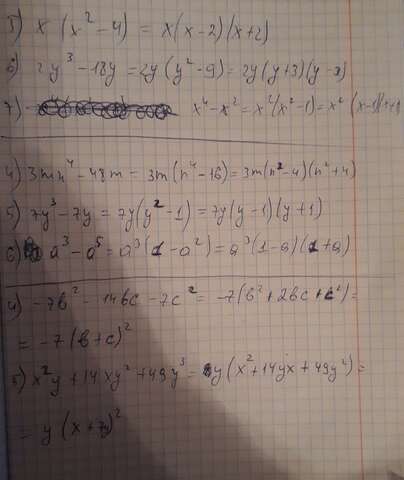 5) x (x² - 4) = x(x-2)(x+2)
6) 2y³ - 18y = 2y(y² - 9) = 2y(y+3)(y-x)
7) x⁴ - x² = x²(x² - 1) = x² (x-1)(x+1)
4) 3mn⁴ - 48m = 3m(n⁴ - 16) = 3m(n² - 4)(n² + 4)
5) 7y³ - 7y = 7y(y² - 1) = 7y(y-1)(y+1)
6) a³ - a⁵ = a³(1 - a²) = a³(1-a)(1+a)
4) -7b² - 14bc - 7c² = -7(b² + 2bc + c²) =
= -7(b+c)²
5) x²y + 14xy² + 49y³ = y(x² + 14yx + 49y²) =
= y (x+7y)²